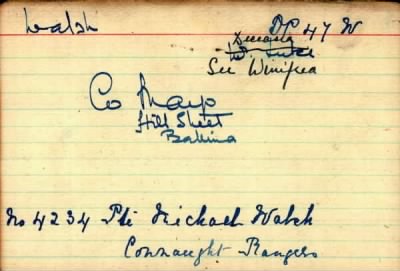 Walsh DP 47 W
Deceased
See Winifred
Co Mayo
Hill Street
Ballina
No 4234 Pte Michael Walsh
Connaught Rangers